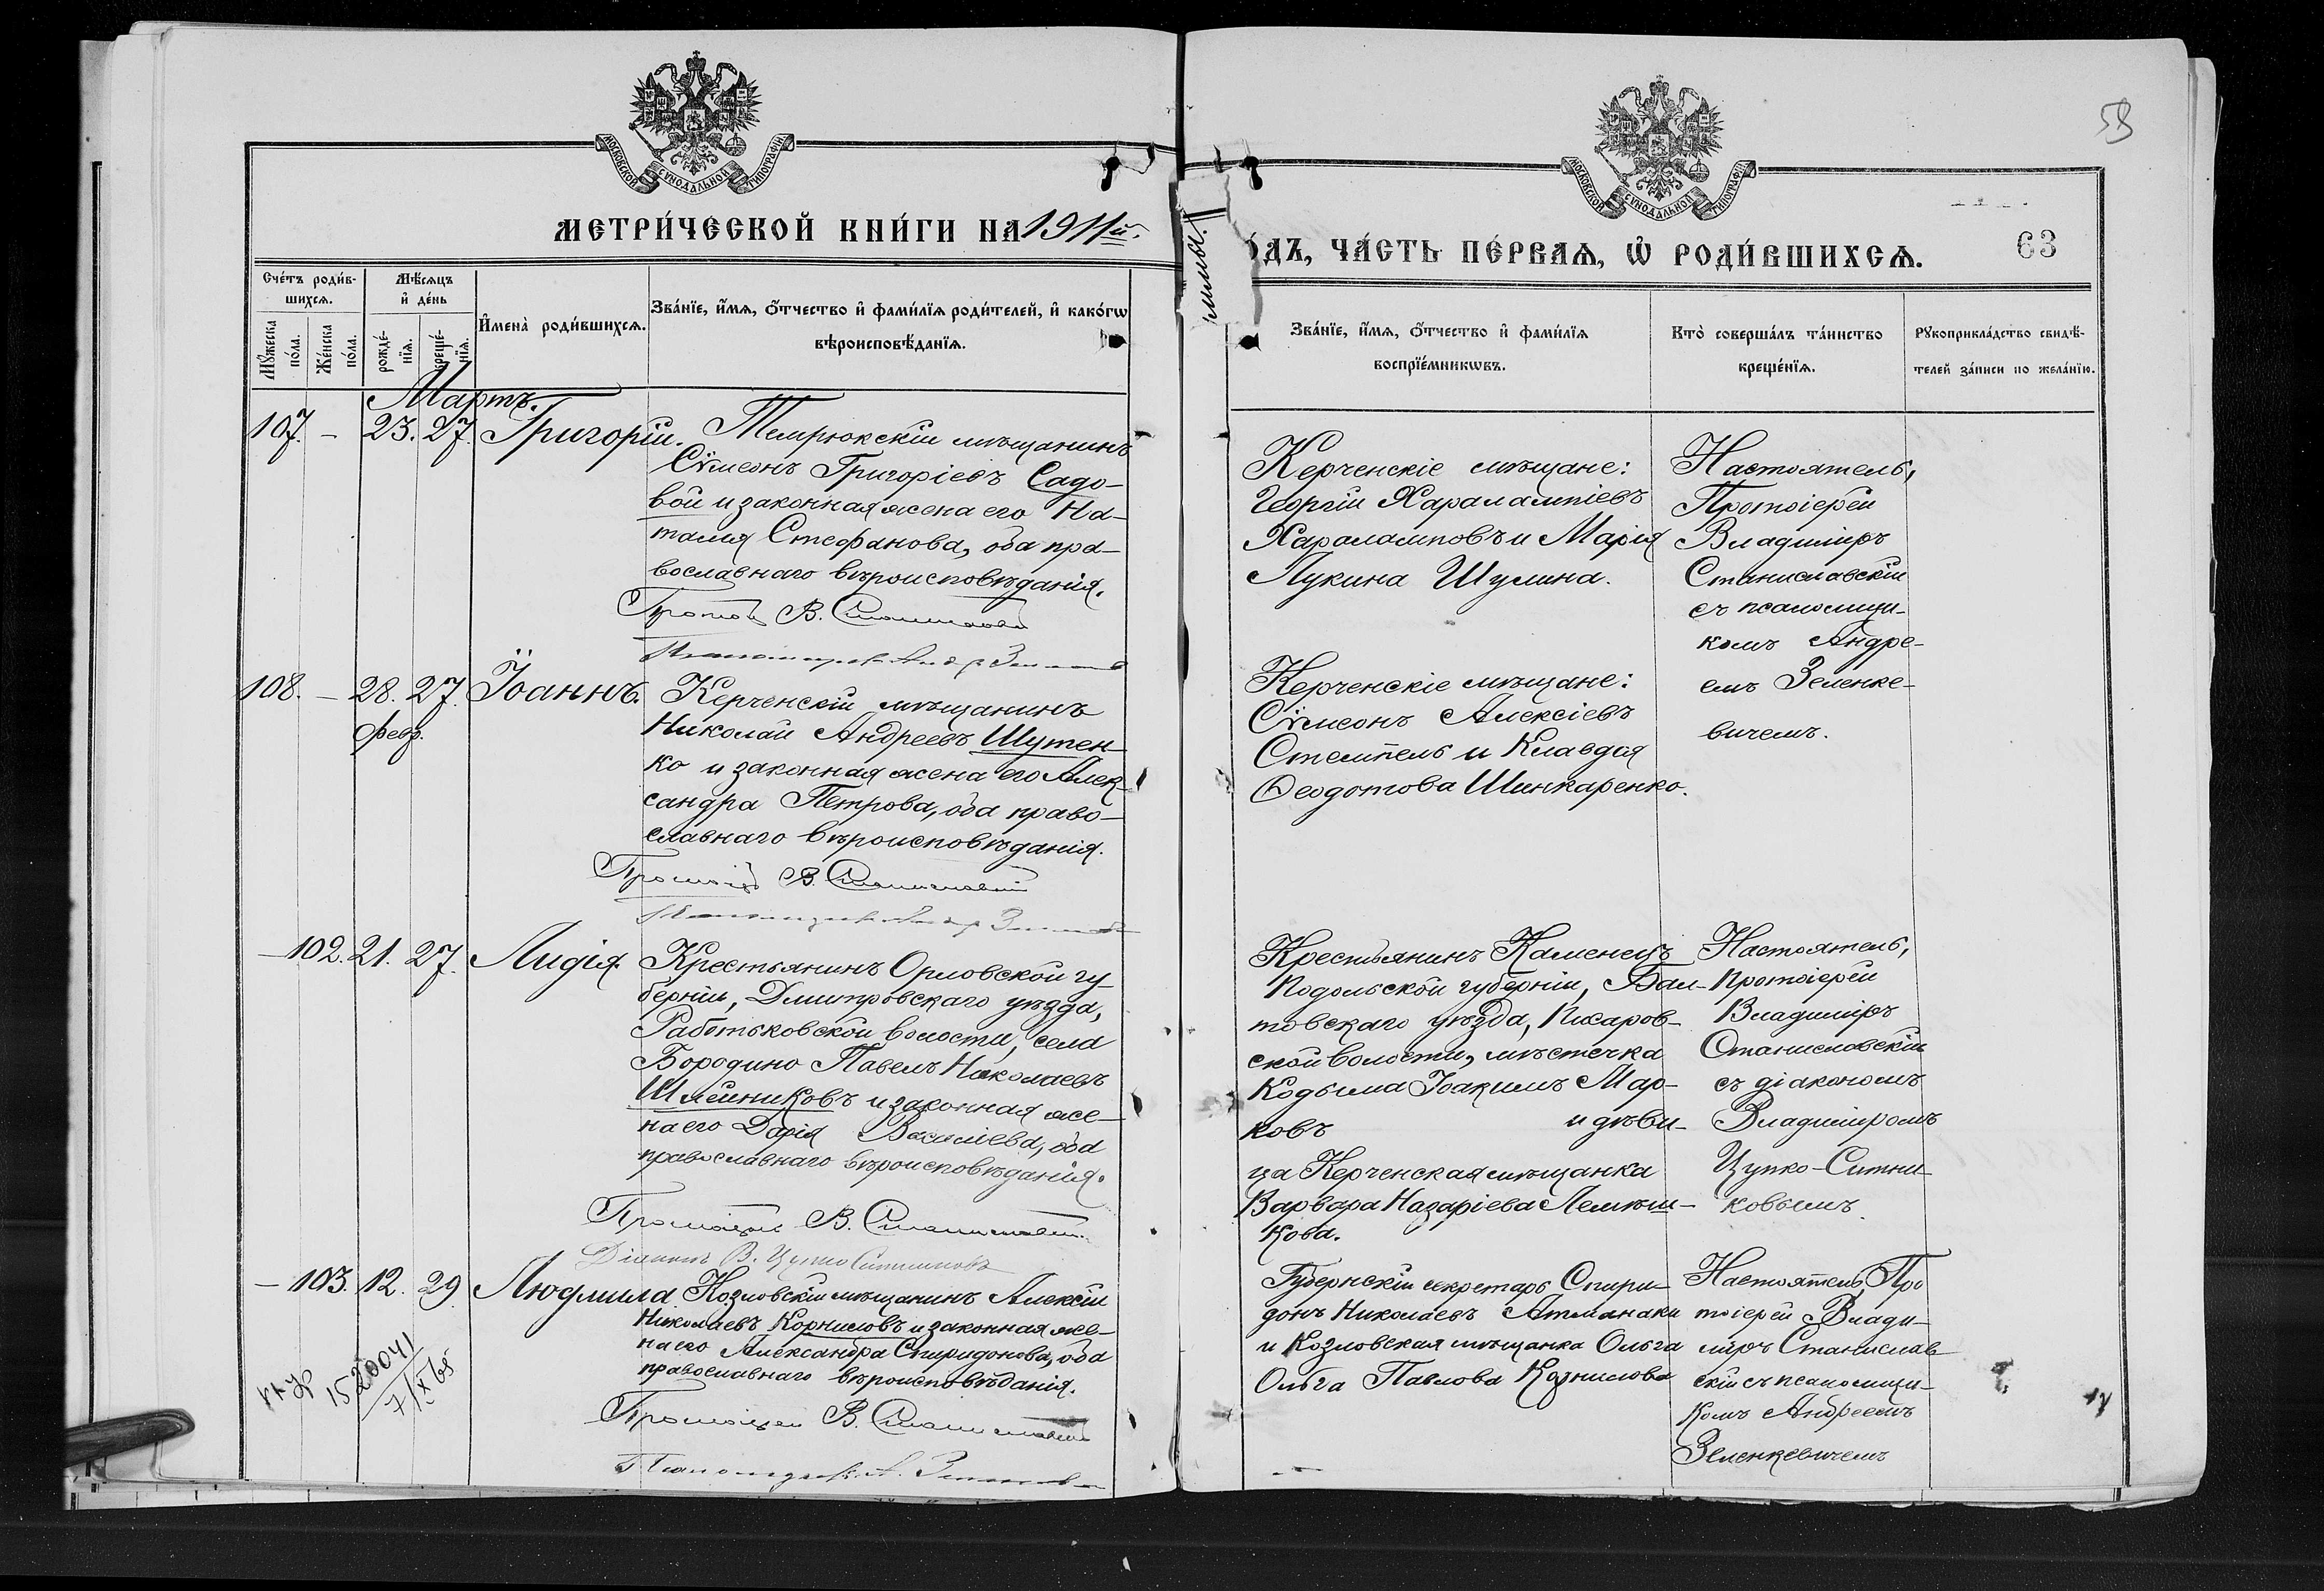 58
МОСКОВСКОЙ СѴНОДАЛЬНОЙ ТИПОГРАФІИ
МОСКОВСКОЙ СѴНОДАЛЬНОЙ ТИПОГРАФІИ
МЕТРИ́ЧЕСКОЙ КНИ́ГИ НА 1911й.
О́ДЪ, ЧА́СТЬ ПЕ́РВАЯ, Ѽ РОДИ́ВШИХСЯ.
63
Сче́тъ роди́в-
шихся.
Мꙋ́жеска
по́ла.
Же́нска
по́ла.
Мѣ́сяцъ
и҆ де́нь
рожде́-
нїя.
креще́-
нїя.
И҆мена̀ роди́вшихся.
Зва́нїе, и҆́мя, ѻ҆́тчество и҆ фами́лїя роди́телей, и҆ како́гѡ
вѣроисповѣ́данїя.
Зва́нїе, и҆́мя, ѻ҆́тчество и҆ фами́лїя
воспрїе́мникѡвъ.
Кто̀ соверша́лъ та́инство
креще́нїя.
Рꙋкоприкла́дство свидѣ́-
телей за́писи по жела́нїю.
Мартъ.
107. – 23. 27. Григорій.
Темрюкскій мѣщанинъ
Сѵмеонъ Григоріевъ Садо-
вой и законная жена его На-
талія Стефанова, оба пра-
вославнаго вѣроисповѣданія.
Протоі В. Станиславскій
Псаломщикъ Андр Зеленкев
Керченскіе мѣщане:
Георгій Харалампіевъ
Хараламповъ и Марія
Лукина Шулина.
Настоятель,
Протоіерей
Владиміръ
Станиславскій
съ псаломщи-
комъ Андре-
емъ Зеленке-
вичемъ.
108. – 28. 27. Іоаннъ.
февр.
Керченскій мѣщанинъ
Николай Андреевъ Шутен-
ко и законная жена его Алек-
сандра Петрова, оба право-
славнаго вѣроисповѣданія.
Протоіер В. Станиславскій
Псаломщикъ Андр Зеленкев
Керченскіе мѣщане:
Сѵмеонъ Алексіевъ
Стемпель и Клавдія
Ѳеодотова Шинкаренко.
– 102. 21. 27. Лидія.
Крестьянинъ Орловской гу-
берніи, Дмитровскаго уѣзда,
Работьковской волости, села
Бородино Павелъ Николаевъ
Шлейниковъ и законная же-
на его Дарія Васильева, оба
православнаго вѣроисповѣданія.
Протоіерей В. Станиславскій
Діаконъ В. Цупко Ситниковъ
Крестьянинъ Каменецъ
Подольской губерніи, Бал-
товскаго уѣзда, Писаров-
ской волости, мѣстечка
Кодыма Іоакимъ Мар-
ковъ и дѣви-
ца Керченская мѣщанка
Варвара Назаріева Лемѣш-
кова.
Настоятель,
Протоіерей
Владиміръ
Станиславскій
съ діакономъ
Владиміромъ
Цупко-Ситни-
ковымъ.
– 103. 12. 29. Людмила
Козловскій мѣщанинъ Алексій
Николаевъ Корниловъ и законная же-
на его Александра Спиридонова, оба
православнаго вѣроисповѣданія.
Протоіерей В. Станиславскій
Псаломщикъ А. Зеленкев
1520041
7/X 65
Губернскій секретарь Спири-
донъ Николаевъ Атманаки
и Козловская мѣщанка Ольга
Ольга Павлова Корнилова
Настоятель, Про
тоіерей Влади-
міръ Станислав
скій съ псаломщи-
комъ Андреемъ
Зеленкевичемъ